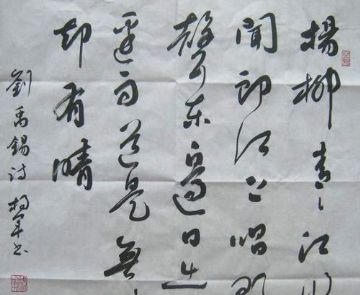 楊柳青々江水
聞郎江上唱歌
聲东邊日出
邊雨道是無
却有晴
劉禹錫詩